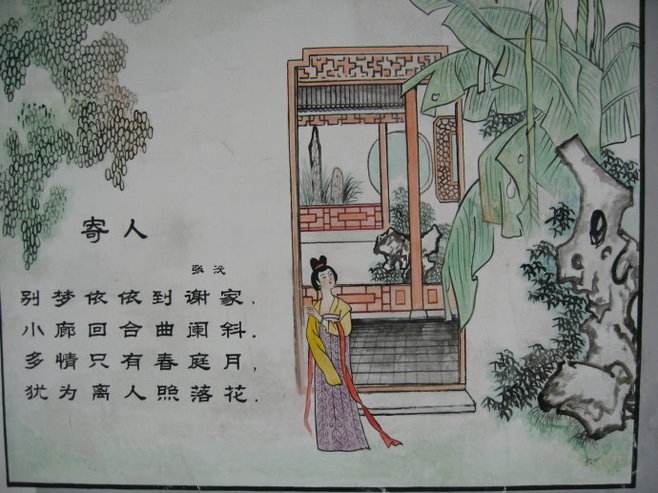 寄人
张泌
别梦依依到谢家.
小廊回合曲阑斜.
多情只有春庭月,
犹为离人照落花.